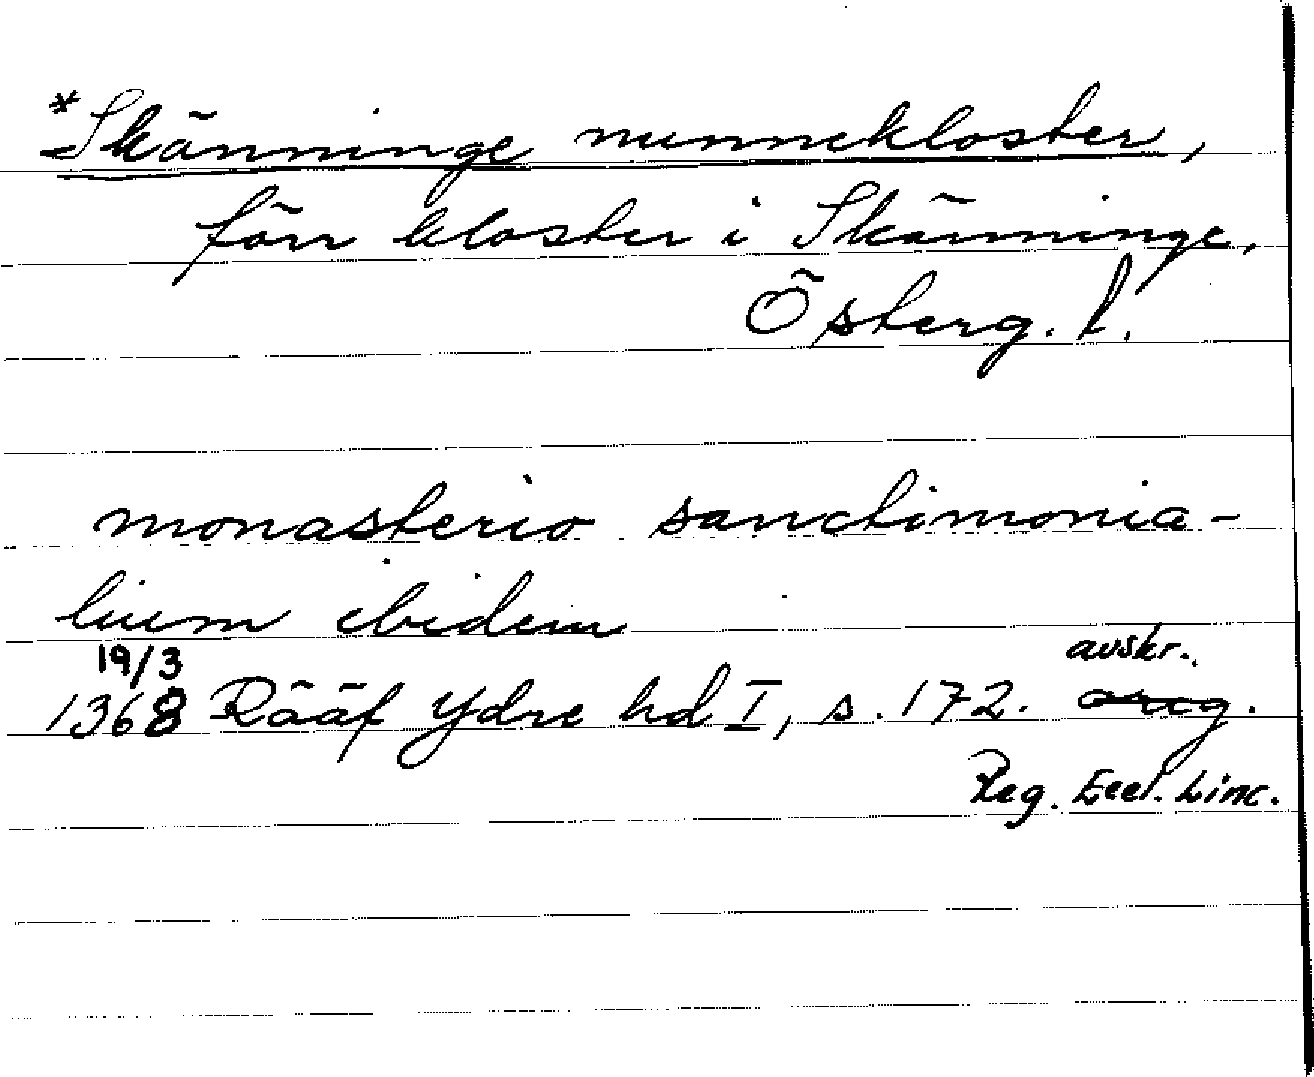 *Skänninge nunnekloster,
förr kloster i Skänninge,
Österg. l.
monasterio sanctimonia-
lium ibidem
19/3
avskr.
1368 Rääf Ydre hd I, s. 172. orig.
Reg. Eccl. Linc.